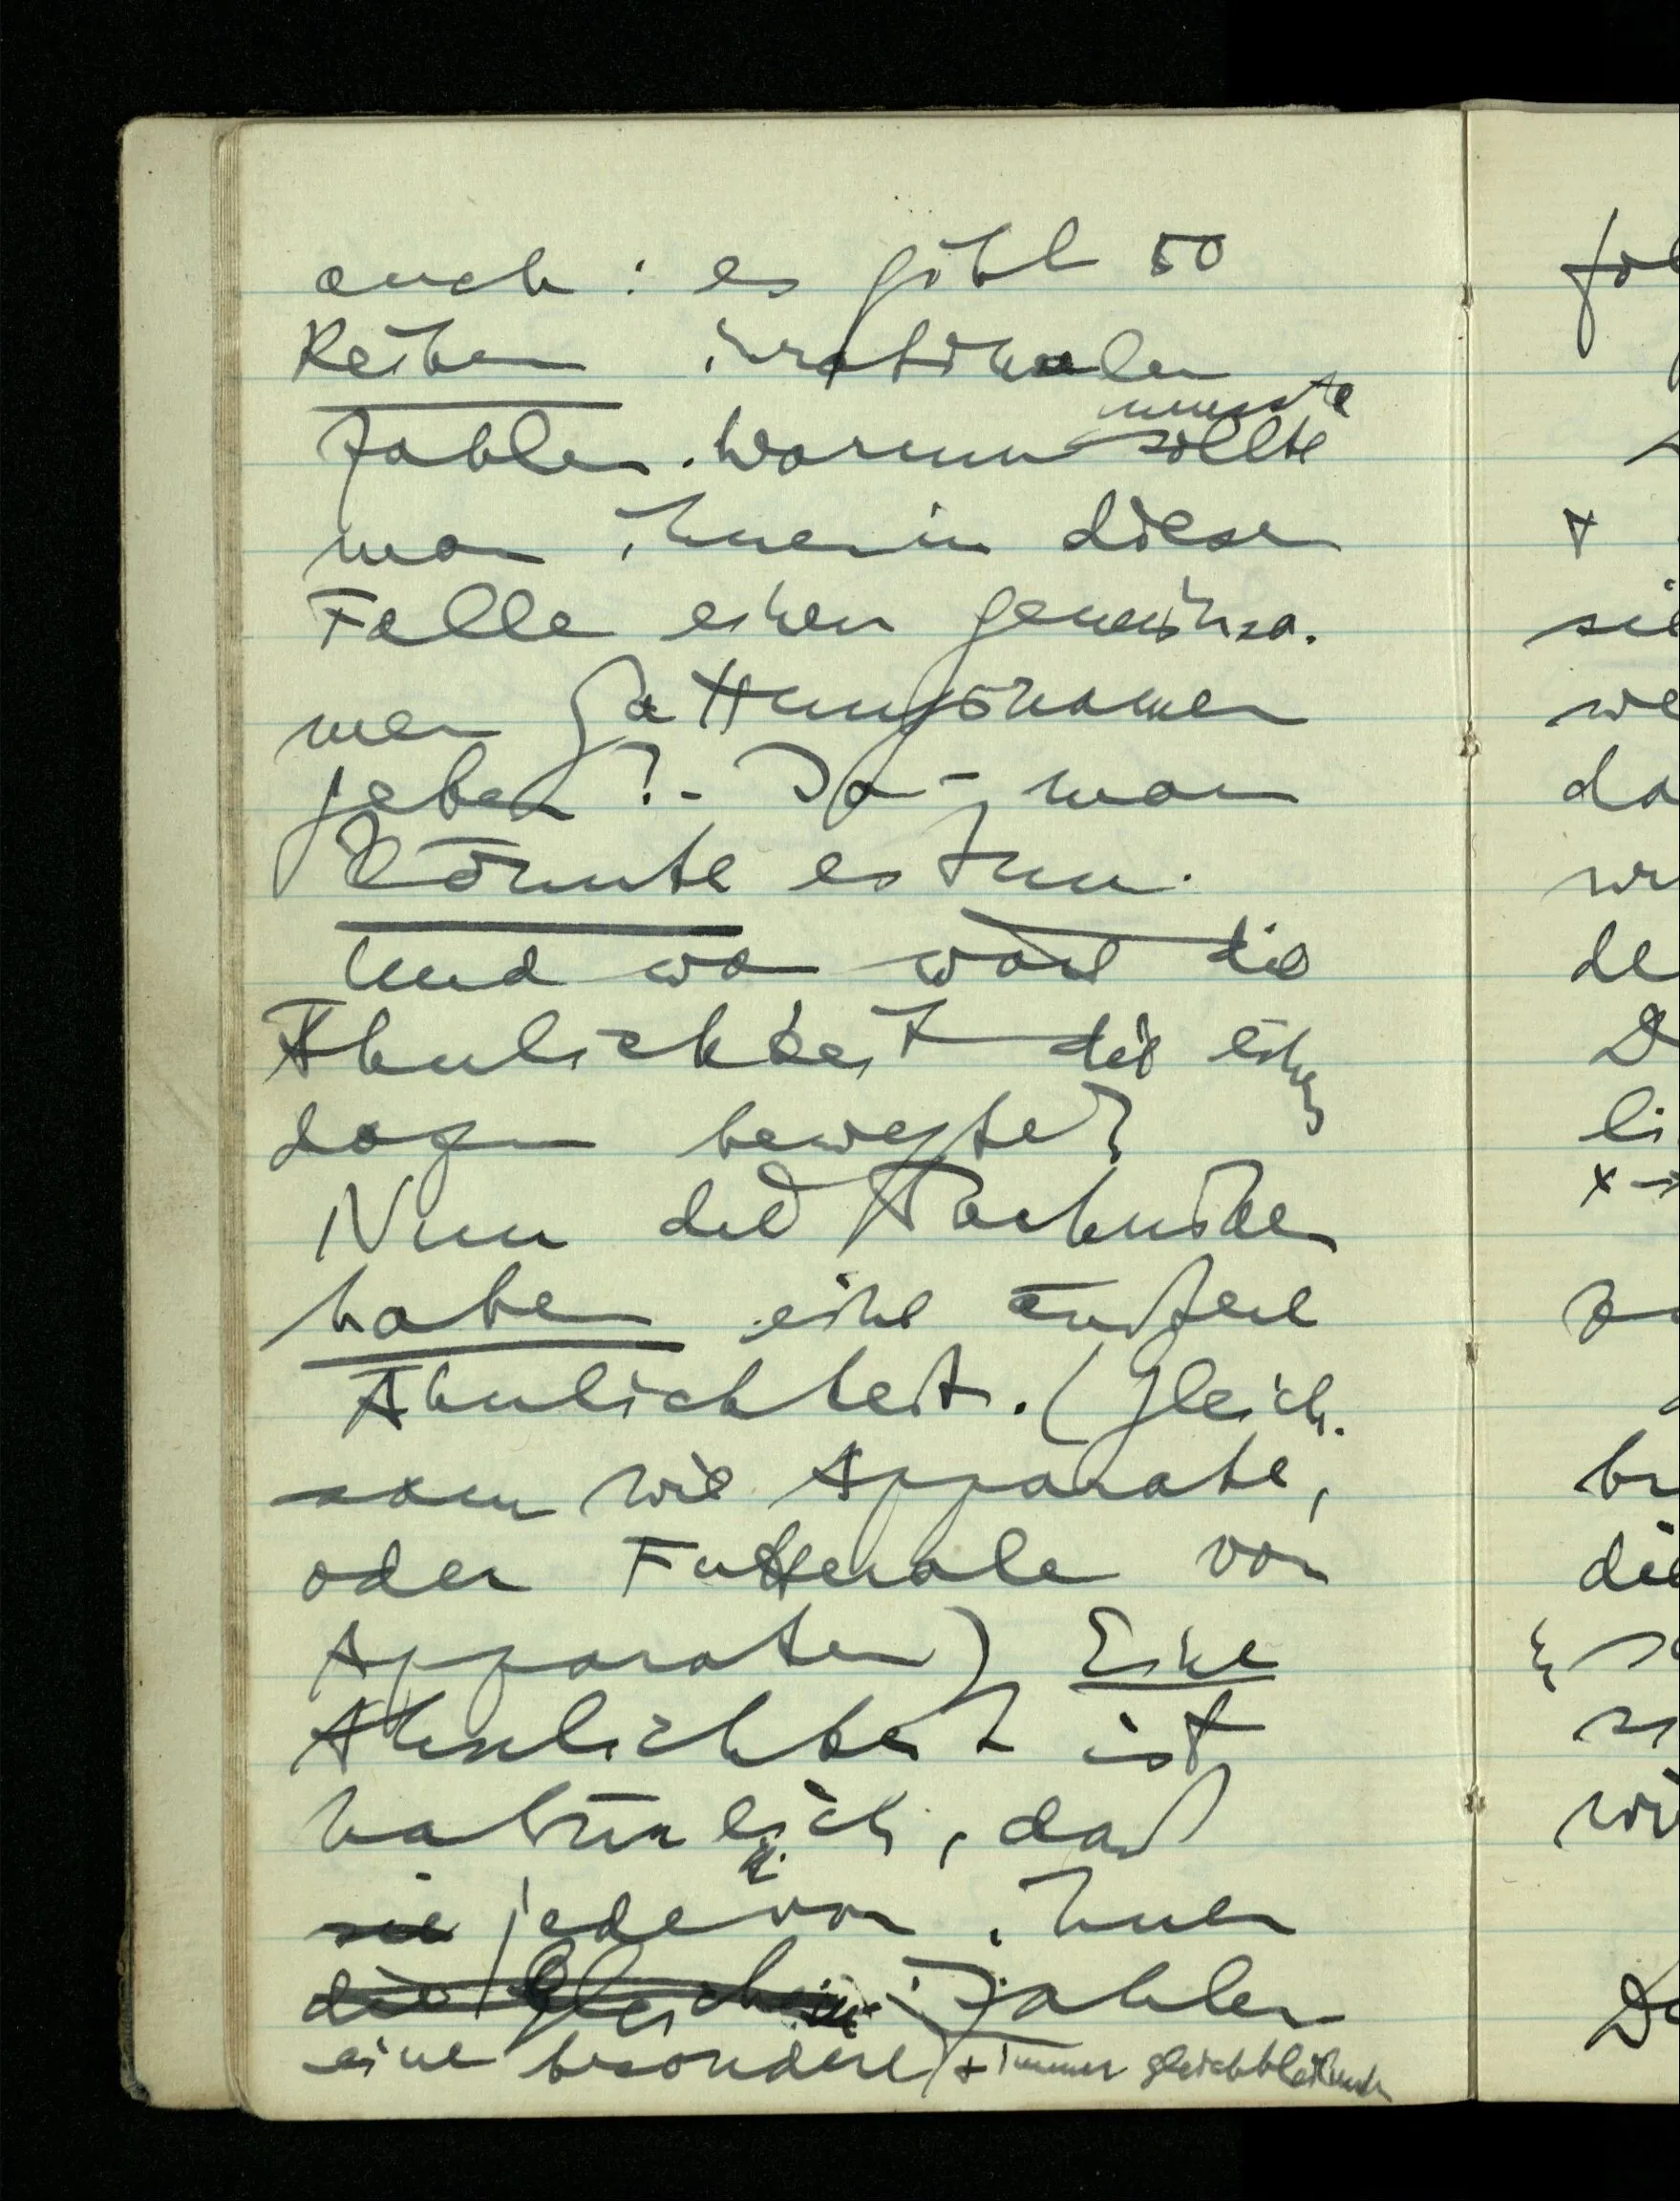 auch: es gibt 50
Reihen irrationaler
musste
Zahlen. Warum sollte
man ihnen in diesem
Falle einen gemeinsa-
men Gattungsnamen
geben? - Ja - man
könnte es tun.
Und wo wäre die
Ähnlichkeit die einen
dazu bewegte?
Nun die Techniken
haben eine äußere
Ähnlichkeit. (Gleich-
sam wie Apparate,
oder Futterale von
Apparaten) Eine
Ähnlichkeit ist
natürlich, daß
sie jede von ihnen
die Zahlen
eine besondere + immer gleichbleibende